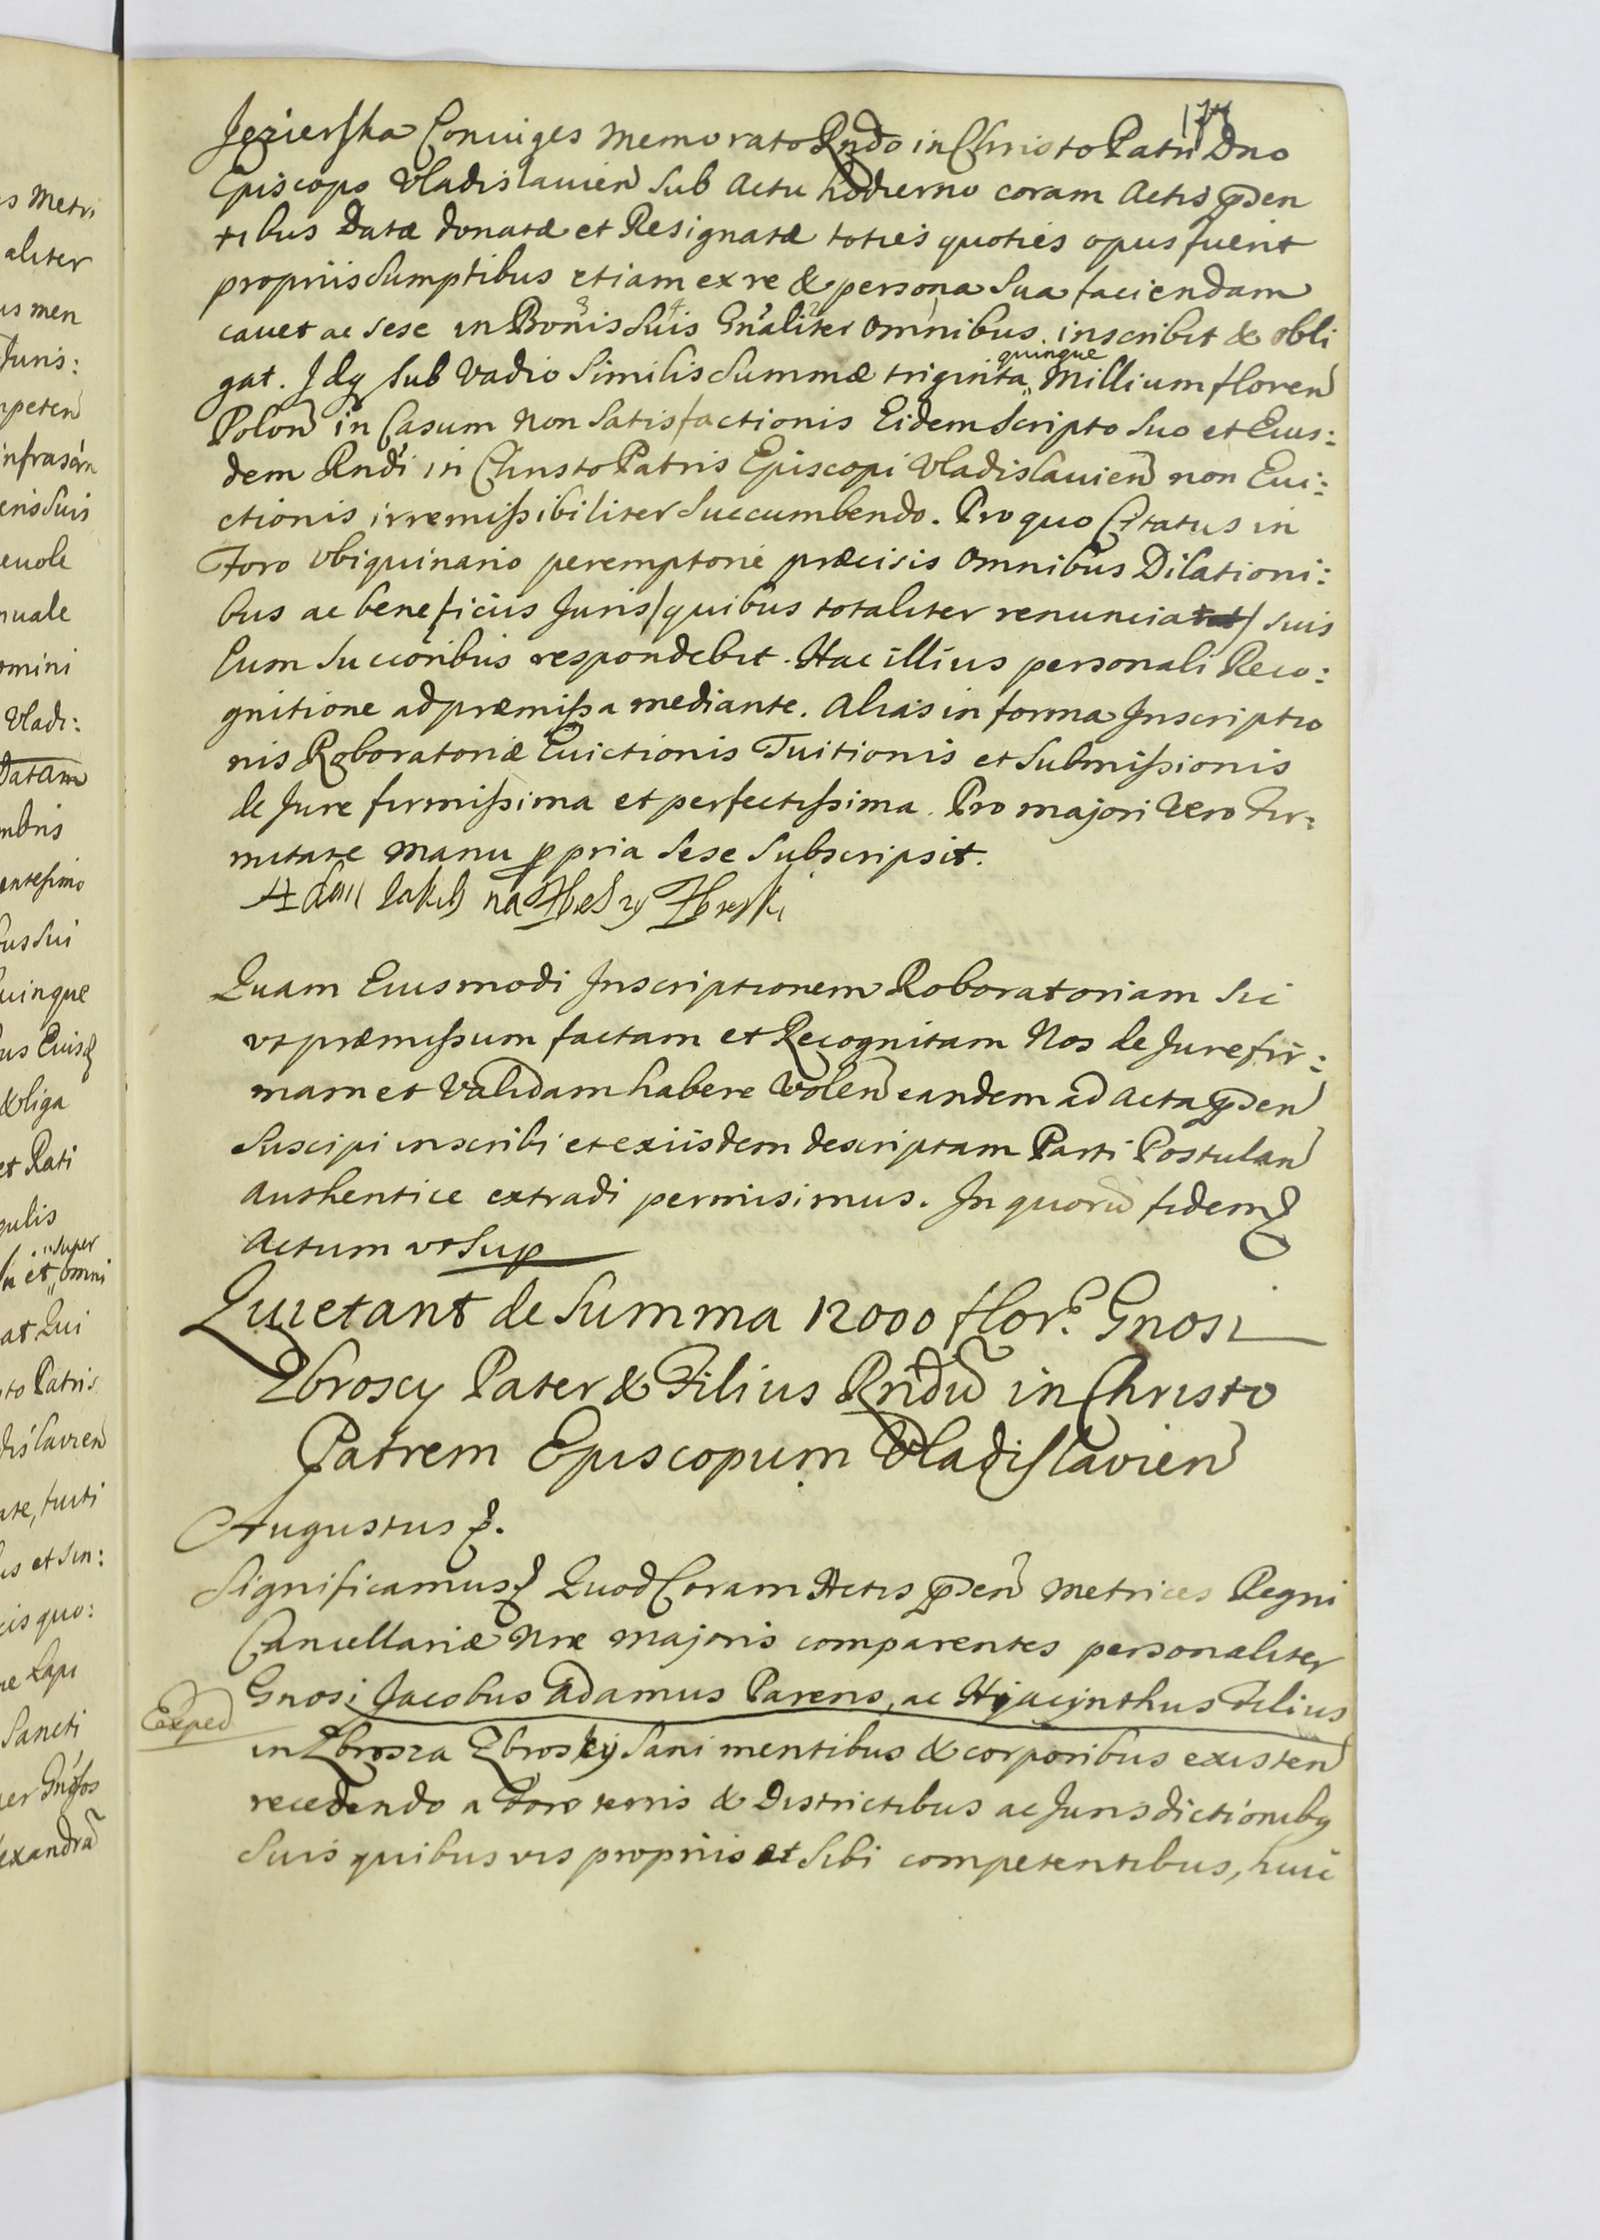 Jezierska Coniuges memorato Rndo in Christo Patri Dno
Episcopo Vladislauien sub actu hodierno coram Actis pden
tibus Datæ donatæ et Resignatæ toties quoties opus fuerit
propriis sumptibus etiam ex re & persona sua faciendam
cauet ac sese in Bonis suis Gnaliter omnibus inscribit & obli
gat. Idq sub vadio similis summæ triginta quinque Millium floren
Polon in Casum non satisfactionis Eidem scripto suo et Eius:
dem Rndi in Christo Patris Episcopi Vladislauien non Eui:
ctionis irremissibiliter succumbendo. Pro quo Citatus in
Foro vbiquinario peremptorie præcisis omnibus Dilationi:
bus ac beneficiis Juris/quibus totaliter renunciat/ suis
cum succoribus respondebit. Hac illius personali Reco:
gnitione ad præmissa mediante. Alias in forma Inscriptio
nis Roboratoriæ Euictionis Tuitionis et Submissionis
de Jure firmissima et perfectissima. Pro majori vero Fir:
mitate manu ppria sese subscripsit.
Adam Jakub na Zbroszy Zbroski
Quam Eiusmodi Inscriptionem Roboratoriam sic
vt præmissum factam et Recognitam Nos de Jure fir:
mam et validam habere volen eandem ad Acta pden
suscipi inscribi et ex iisdem descriptam Parti Postulan
authentice extradi permisimus. In quoru fidem
Actum vt sup
Quietant de Summa 12000 flor. Gnosi
Zbroscy Pater & Filius Rndu in Christo
Patrem Episcopum Vladislavien
Augustus
Significamus Quod Coram Actis pden Metrices Regni
Cancellariæ Nræ majoris comparentes personaliter
Gnosi Jacobus Adamus Parens, ac Hyacynthus Filius
Exped
in Zbrosza Zbroscy sani mentibus & corporibus existen
recedendo a Foro terris & Districtibus ac Jurisdictionibq
suis quibusvis propriis et sibi competentibus, huic
174